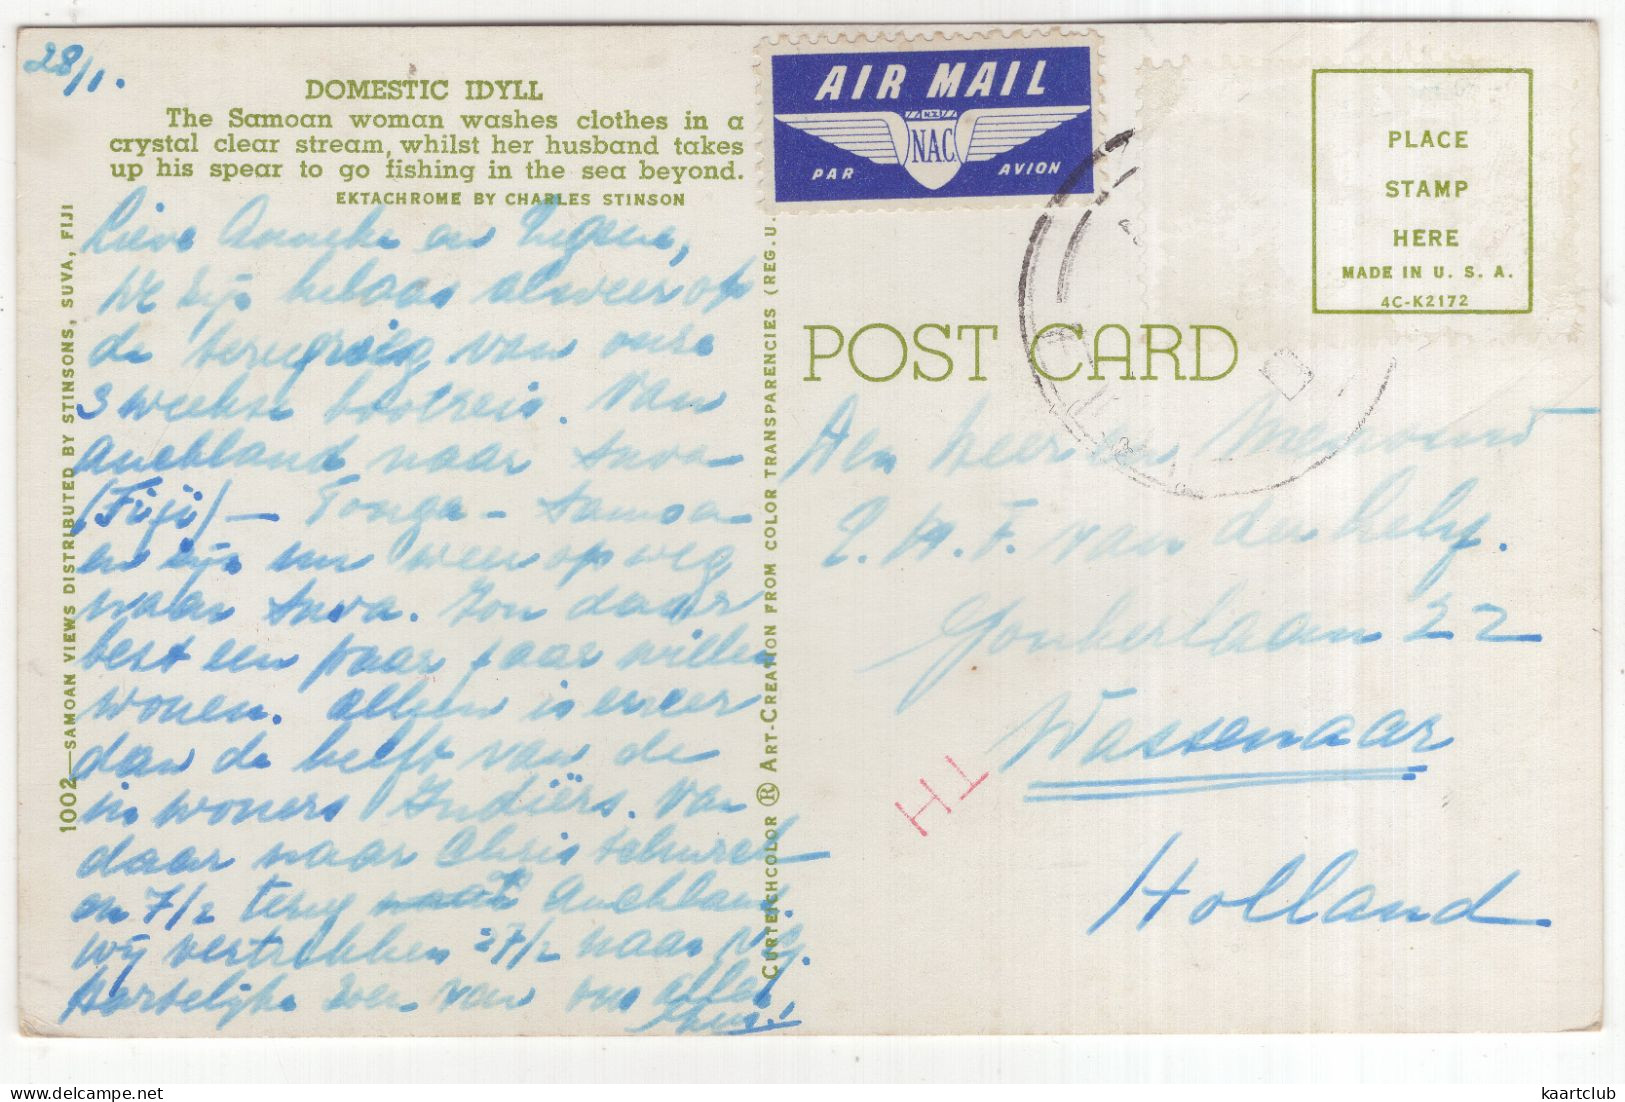 28/1.
DOMESTIC IDYLL
The Samoan woman washes clothes in a
crystal clear stream, whilst her husband takes
up his spear to go fishing in the sea beyond.
EKTACHROME BY CHARLES STINSON
Lieve Anneke en Eugene,
We zijn helaas alweer op
de terugreis van onze
3 weekse bootreis. Van
Auckland naar Suva
(Fiji) – Tonga – Samoa
en zijn nu weer op weg
naar Suva. Zou daar
best een paar jaar willen
wonen. Alleen is meer
dan de helft van de
inwoners Indiërs. Van
daar naar Christchurch
en 7/2 terug Auckland.
Wij vertrekken 27/2 naar
Hartelijke zoen van ons allen
1002—SAMOAN VIEWS DISTRIBUTED BY STINSONS, SUVA, FIJI
CURTEICHCOLOR ® ART-CREATION FROM COLOR TRANSPARENCIES (REG.U.
AIR MAIL
N.Z.
NAC
PAR AVION
PLACE
STAMP
HERE
MADE IN U. S. A.
4C-K2172
POST CARD
Den heer en Mevrouw
v.d. Lely.
Jonkerlaan 22
Wassenaar
Holland
HT
kaartclub